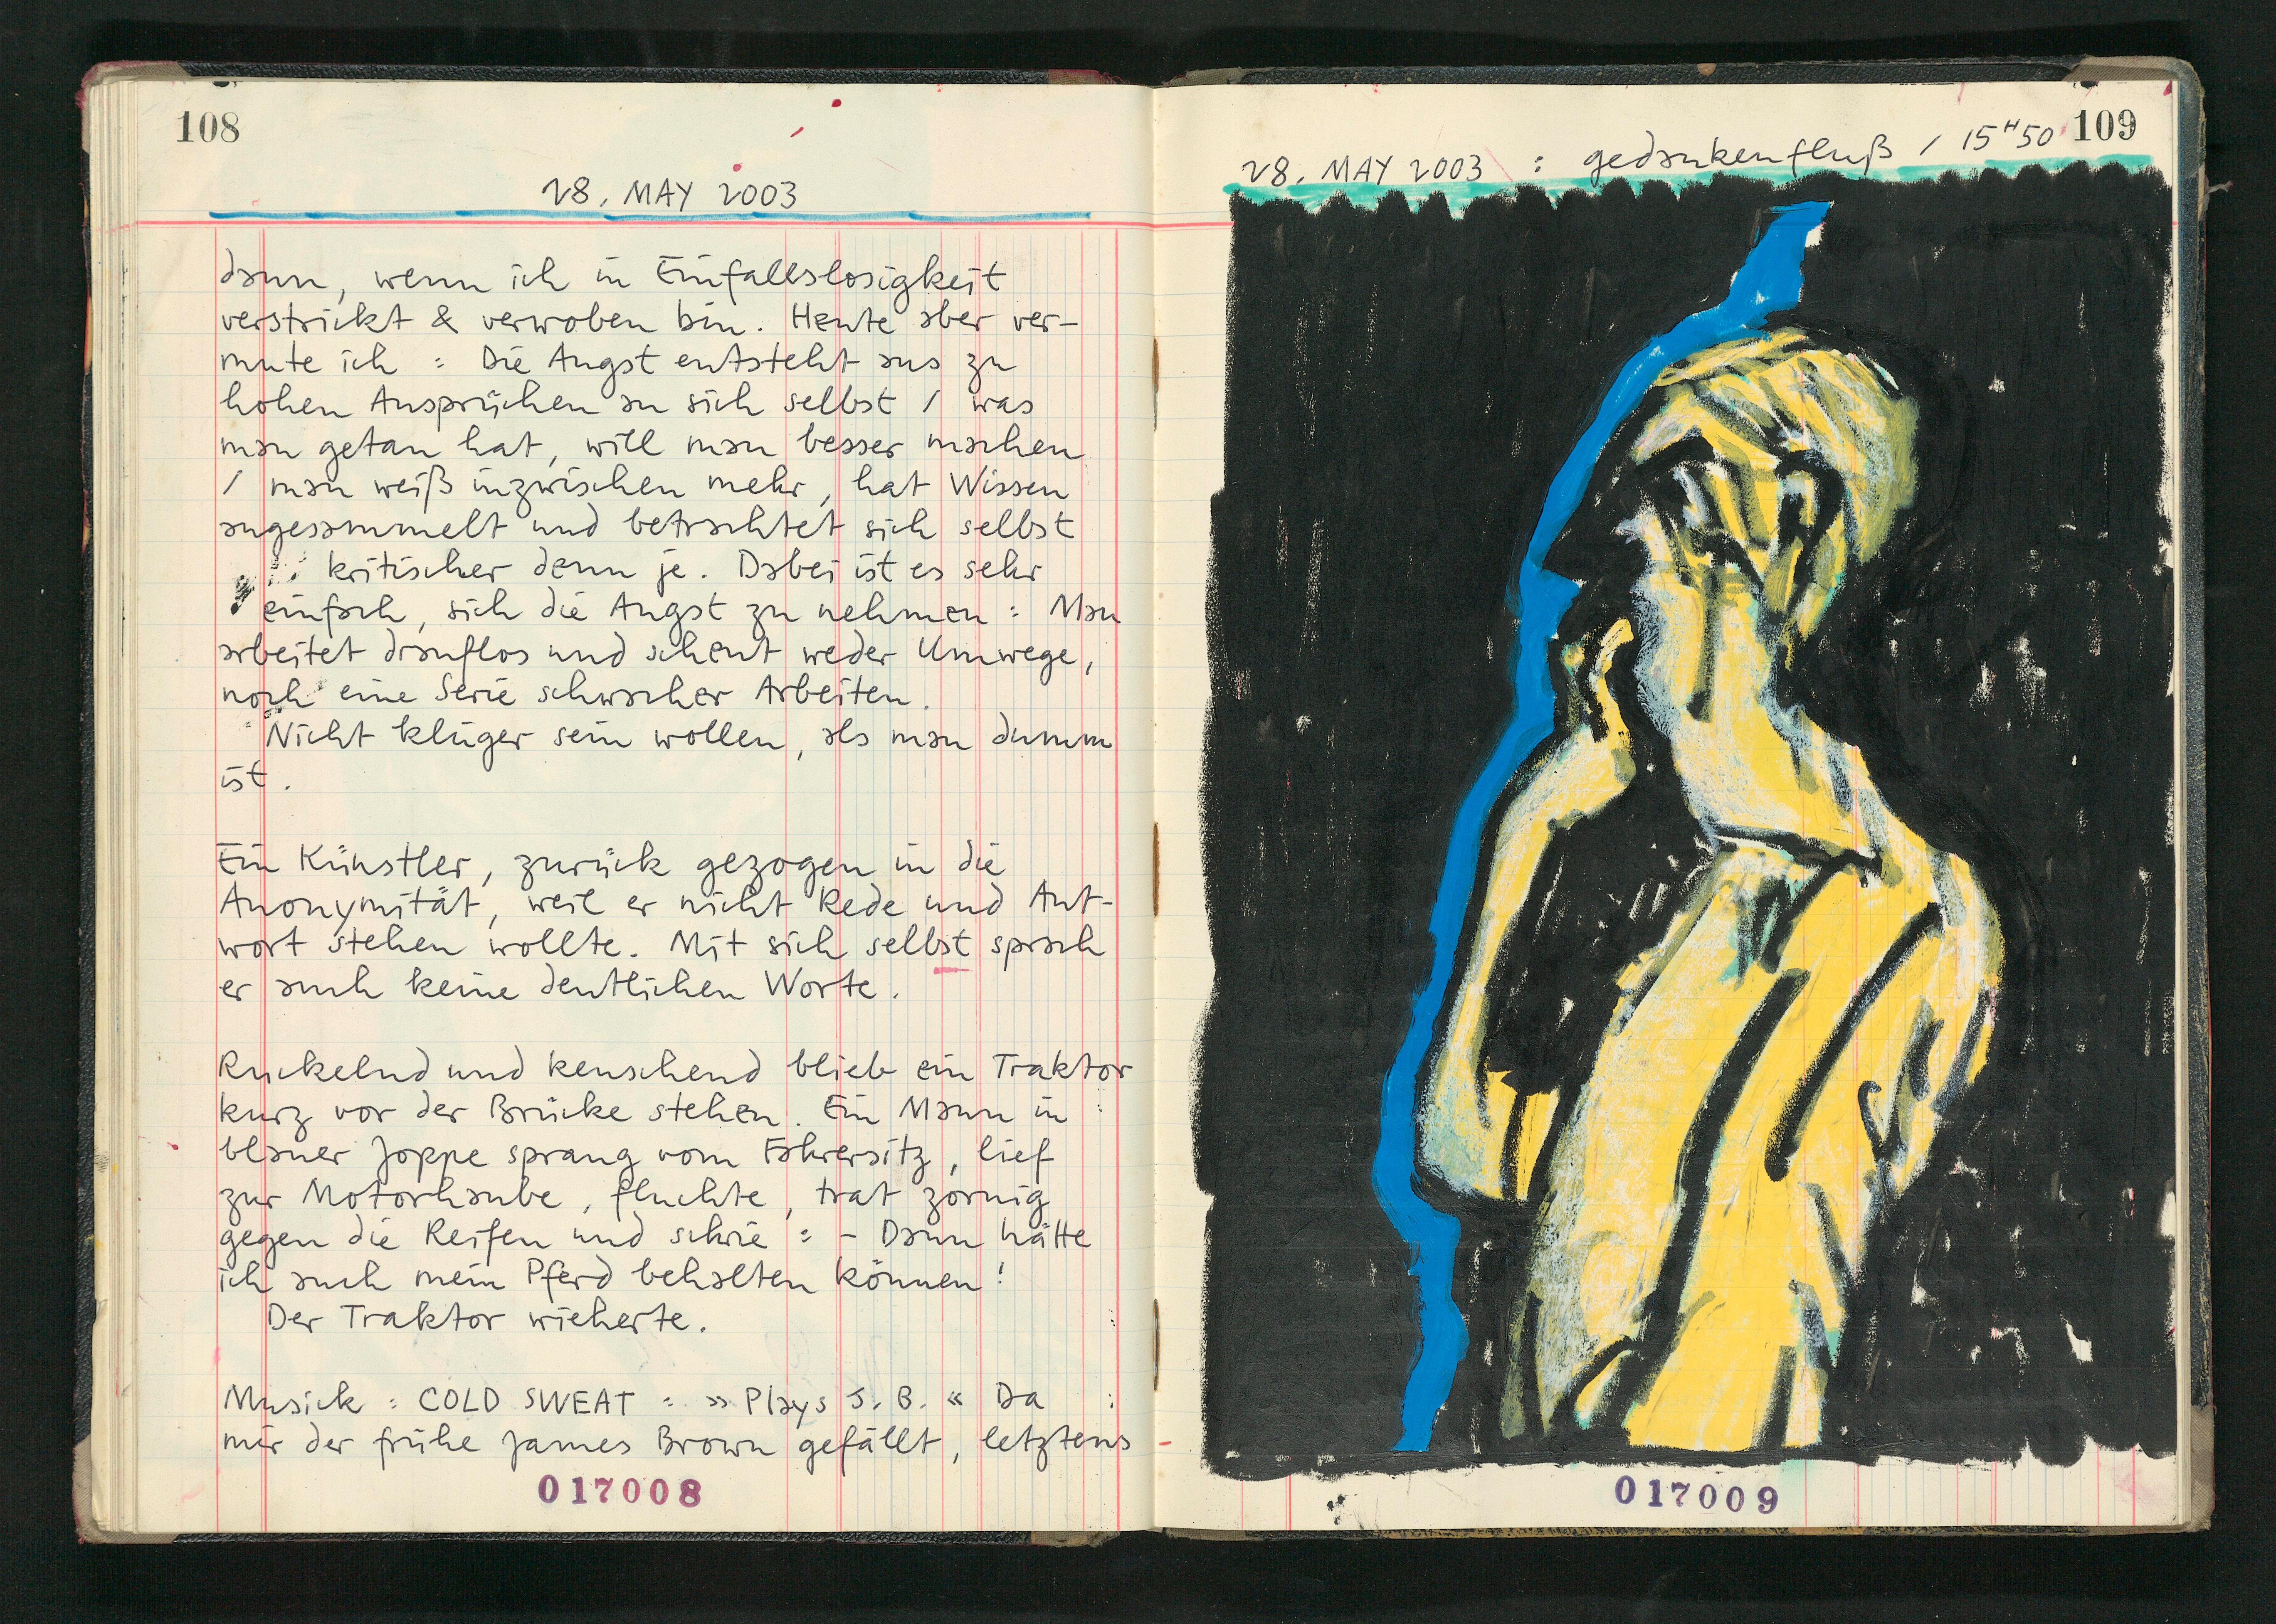 108
28. MAY 2003
dann, wenn ich in Einfallslosigkeit
verstrickt & verwoben bin. Heute aber ver-
mute ich : Die Angst entsteht aus zu
hohen Ansprüchen an sich selbst / was
man getan hat, will man besser machen
/ man weiß inzwischen mehr, hat Wissen
angesammelt und betrachtet sich selbst
kritischer denn je. Dabei ist es sehr
einfach, sich die Angst zu nehmen : Man
arbeitet drauflos und scheut weder Umwege,
noch eine Serie schwacher Arbeiten.
Nicht klüger sein wollen, als man dumm
ist.
Ein Künstler, zurück gezogen in die
Anonymität, weil er nicht Rede und Ant-
wort stehen wollte. Mit sich selbst sprach
er auch keine deutlichen Worte.
Ruckelnd und keuschend blieb ein Traktor
kurz vor der Brücke stehen. Ein Mann in
blauer Joppe sprang vom Fahrersitz, lief
zur Motorhaube, fluchte, trat zornig
gegen die Reifen und schrie : - Dann hätte
ich auch mein Pferd behalten können!
Der Traktor wieherte.
Musick : COLD SWEAT : » Plays J. B. « Da
mir der frühe James Brown gefällt, letztens
017008
109
28. MAY 2003 : gedankenfluß / 15H50
017009